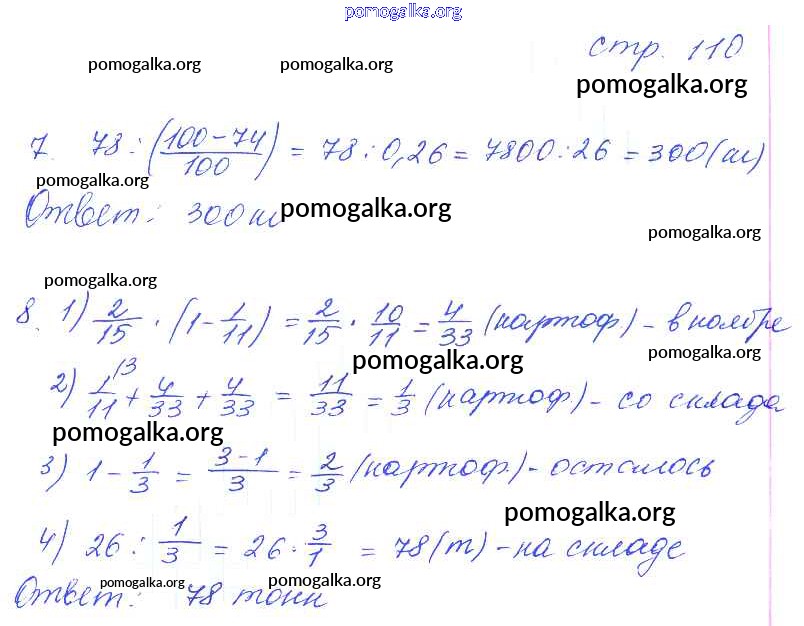 pomogalka.org
стр. 110
pomogalka.org pomogalka.org
pomogalka.org
7. 78 : (100-74/100) = 78 : 0,26 = 7800 : 26 = 300 (м)
pomogalka.org
Ответ: 300 м
pomogalka.org
pomogalka.org
pomogalka.org
8. 1) 2/15 · (1 - 1/11) = 2/15 · 10/11 = 4/33 (картоф.) - в ноябре
pomogalka.org
pomogalka.org
2) 1/11 \3 + 4/33 + 4/33 = 11/33 = 1/3 (картоф.) - со склада
pomogalka.org
3) 1 - 1/3 = 3-1/3 = 2/3 (картоф.) - осталось
pomogalka.org
4) 26 : 1/3 = 26 · 3/1 = 78 (т) - на складе
pomogalka.org pomogalka.org
Ответ: 78 тонн